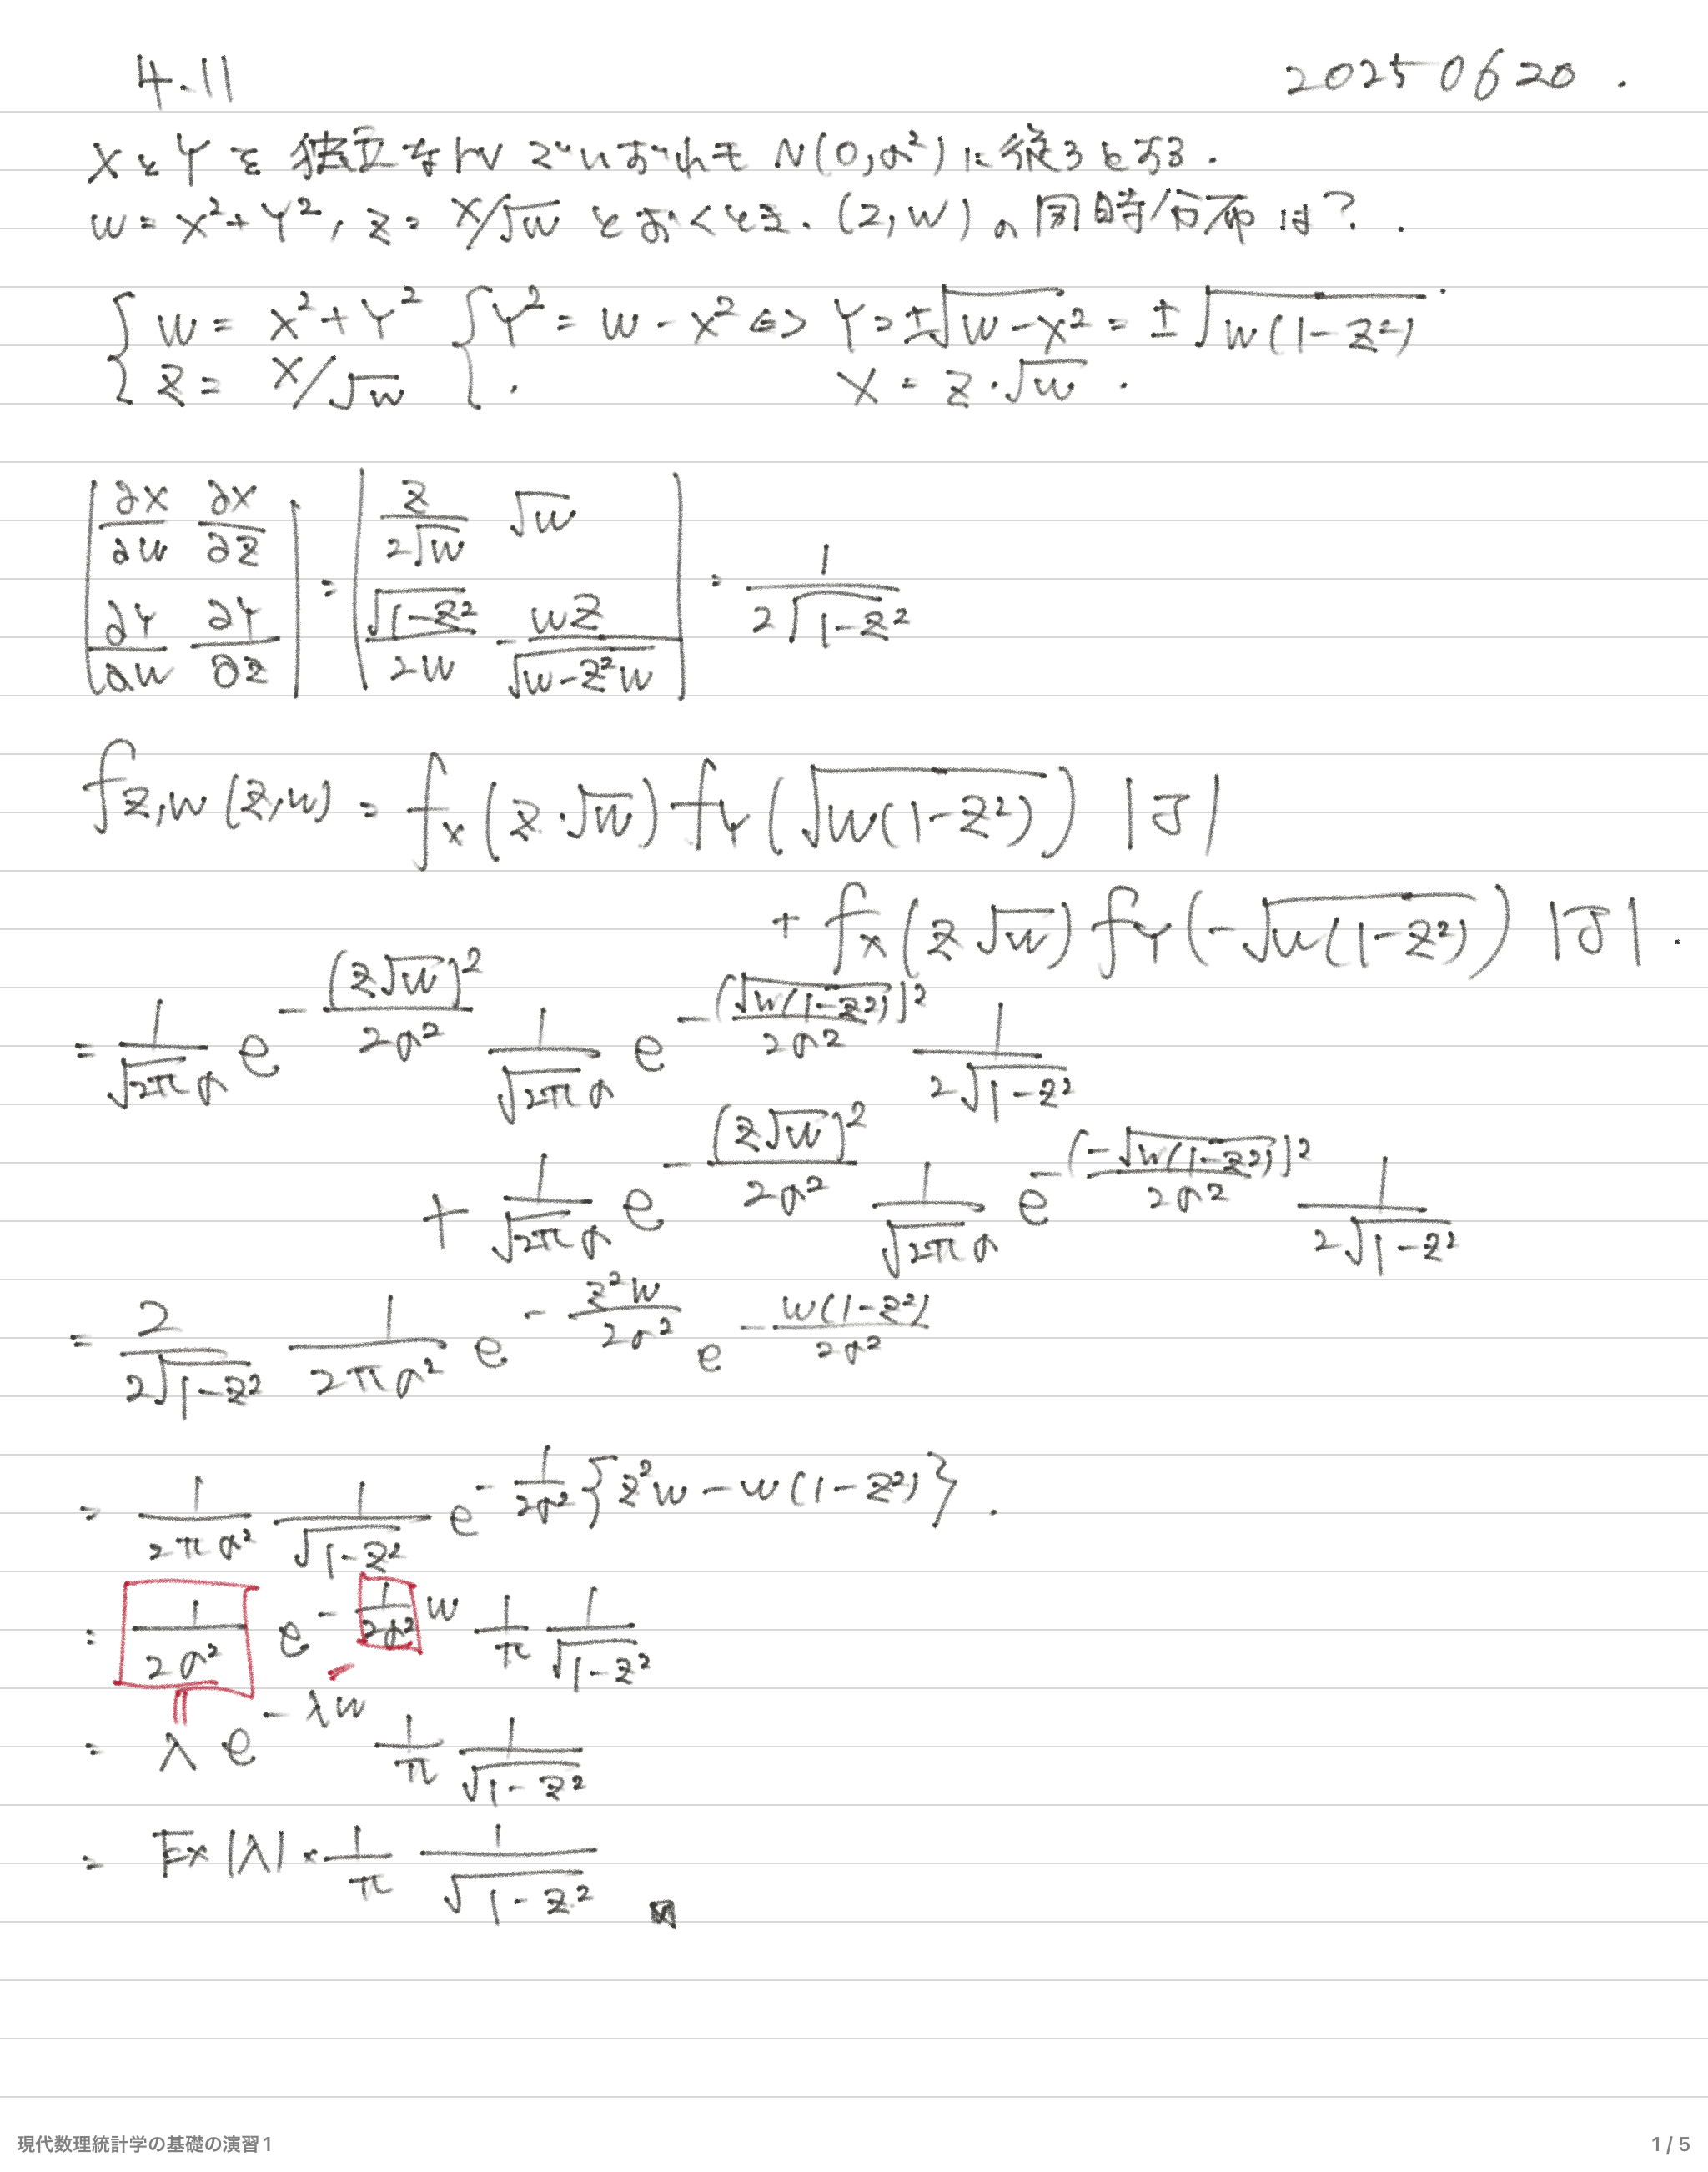 4.11 20250620.
XとYを独立なrvでいずれもN(0,σ²)に従うとする.
W=X²+Y², Z=X/√W とおくとき. (Z,W)の同時分布は?.
{ W = X²+Y² { Y² = W - X² ⇔ Y=±√(W-X²) = ±√(W(1-Z²))
{ Z = X/√W { . X = Z・√W .
| ∂X/∂W ∂X/∂Z | = | Z/(2√W) √W | = 1/(2√(1-Z²))
| ∂Y/∂W ∂Y/∂Z | | √(1-Z²)/(2W) -WZ/√(W-Z²W) |
f_{Z,W}(Z,W) = f_X(Z・√W) f_Y(√(W(1-Z²))) |J|
+ f_X(Z√W) f_Y(-√(W(1-Z²))) |J|.
= 1/(√2π σ) e^{-(Z√W)²/2σ²} 1/(√2π σ) e^{-(√(W(1-Z²)))²/2σ²} 1/(2√(1-Z²))
+ 1/(√2π σ) e^{-(Z√W)²/2σ²} 1/(√2π σ) e^{-(-√(W(1-Z²)))²/2σ²} 1/(2√(1-Z²))
= 2/(2√(1-Z²)) 1/(2πσ²) e^{-Z²W/2σ²} e^{-W(1-Z²)/2σ²}
= 1/(2πσ²) 1/√(1-Z²) e^{-1/2σ² {Z²W-W(1-Z²)}}.
= 1/(2σ²) e^{-1/(2σ²) W} 1/π 1/√(1-Z²)
= λ e^{-λW} 1/π 1/√(1-Z²)
= Ex(λ) × 1/π 1/√(1-Z²)
現代数理統計学の基礎の演習1
1 / 5